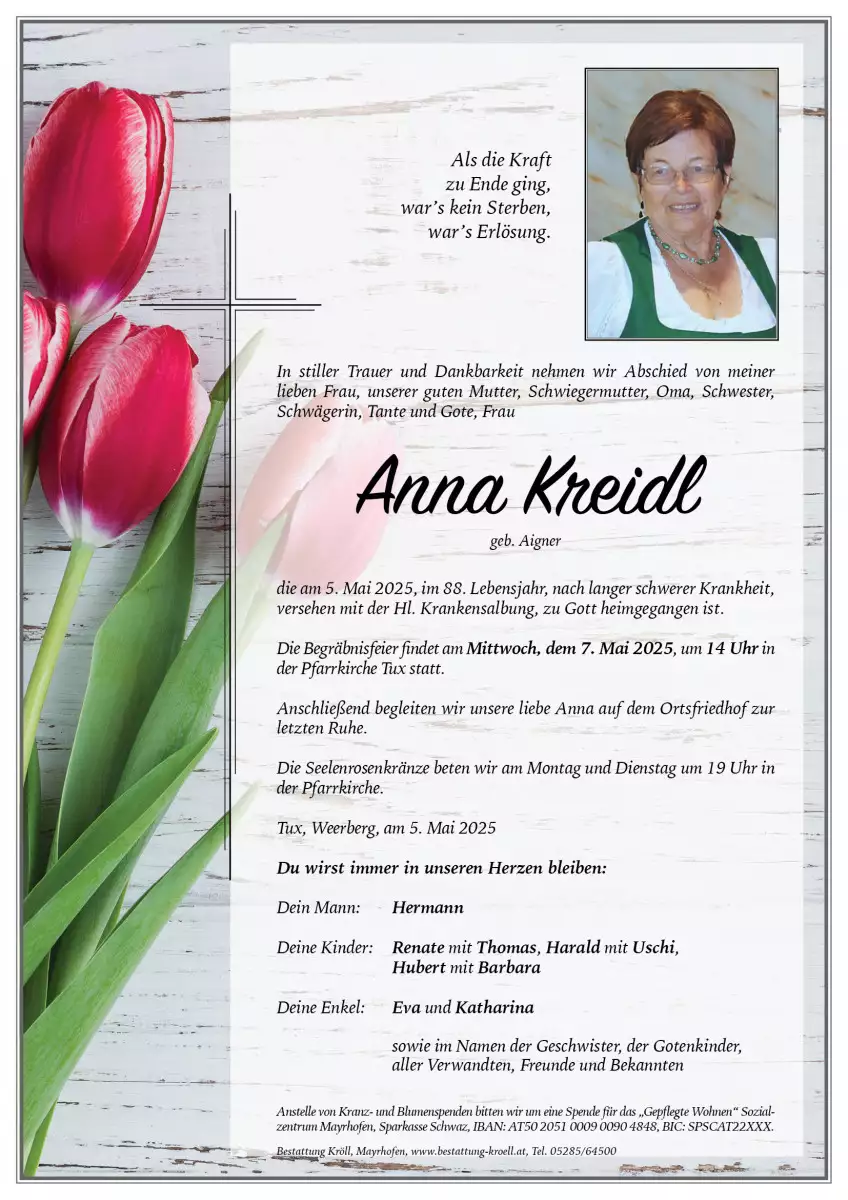 Als die Kraft
zu Ende ging,
war’s kein Sterben,
war’s Erlösung.
In stiller Trauer und Dankbarkeit nehmen wir Abschied von meiner
lieben Frau, unserer guten Mutter, Schwiegermutter, Oma, Schwester,
Schwägerin, Tante und Gote, Frau
Anna Kreidl
geb. Aigner
die am 5. Mai 2025, im 88. Lebensjahr, nach langer schwerer Krankheit,
versehen mit der Hl. Krankensalbung, zu Gott heimgegangen ist.
Die Begräbnisfeier findet am Mittwoch, dem 7. Mai 2025, um 14 Uhr in
der Pfarrkirche Tux statt.
Anschließend begleiten wir unsere liebe Anna auf dem Ortsfriedhof zur
letzten Ruhe.
Die Seelenrosenkränze beten wir am Montag und Dienstag um 19 Uhr in
der Pfarrkirche.
Tux, Weerberg, am 5. Mai 2025
Du wirst immer in unseren Herzen bleiben:
Dein Mann: Hermann
Deine Kinder: Renate mit Thomas, Harald mit Uschi,
Hubert mit Barbara
Deine Enkel: Eva und Katharina
sowie im Namen der Geschwister, der Gotenkinder,
aller Verwandten, Freunde und Bekannten
Anstelle von Kranz- und Blumenspenden bitten wir um eine Spende für das „Gepflegte Wohnen“ Sozial-
zentrum Mayrhofen, Sparkasse Schwaz, IBAN: AT50 2051 0009 0090 4848, BIC: SPSCAT22XXX.
Bestattung Kröll, Mayrhofen, www.bestattung-kroell.at, Tel. 05285/64500